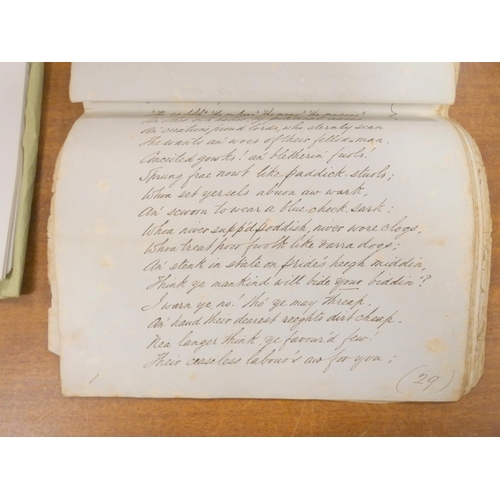 An' creations proud lords, who sternly scan
The wants an' woes of their fellow-man.
Conceited gowks! an' bletherin' fuils!
Sprung frae nowt like paddick-stuols;
Whoa set yersels abuon aw wark,
An' scworn to wear a blue-check sark:
Whoa niver supp'd poddish, niver wore clogs,
Whoa treat poor fwolk like barra dogs;
An' stenk in state on pride's heegh middin,
Think ye mankind will bide your biddin'?
I warn ye, no! tho' ye may threap.
An' haud their dearest reeghts dirt cheap.
Nea langer think ye favour'd few.
Their ceaseless labour's aw for you;
(29)